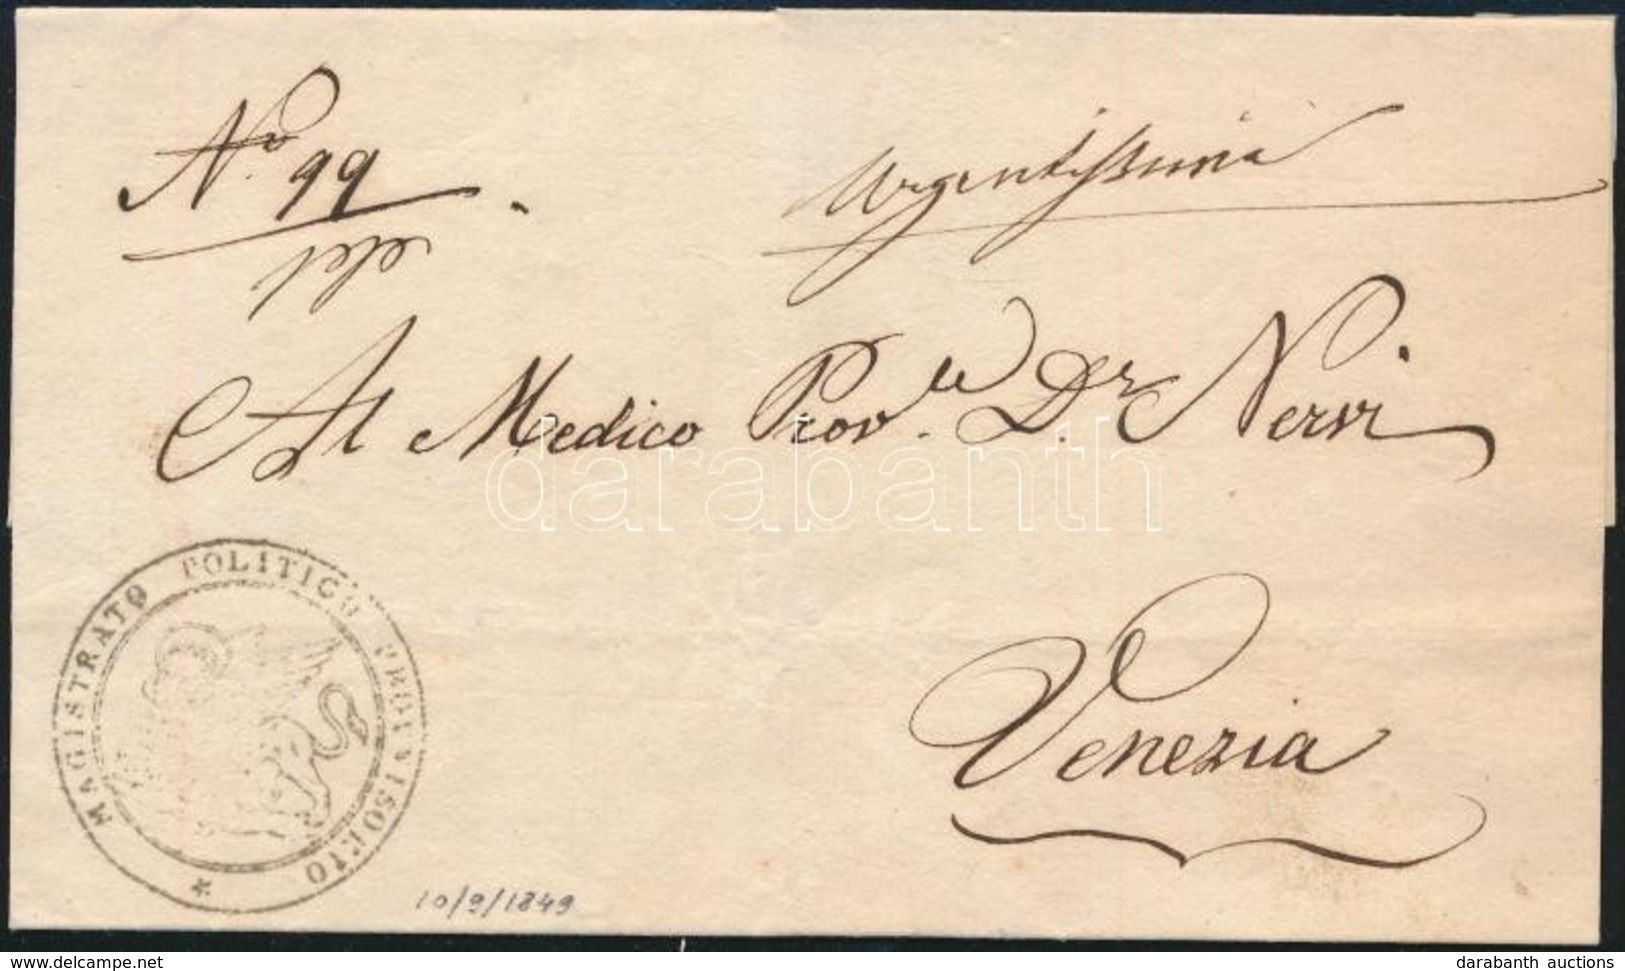 No. 99
Urgentissima
Al Medico Prov.le Dr. Nervi
Venezia
MAGISTRATO POLITICO PROVVISORIO *
10/9/1849
darabanth
www.delcampe.net
darabanth auctions